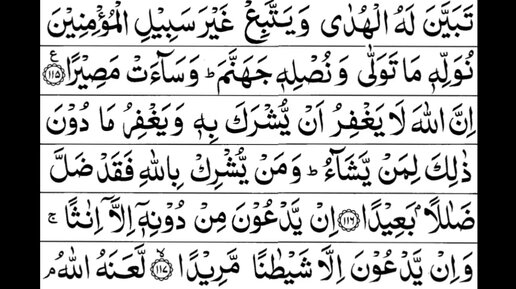 تَبَيَّنَ لَهُ الْهُدٰى وَيَتَّبِعْ غَيْرَ سَبِيْلِ الْمُؤْمِنِيْنَ
نُوَلِّهٖ مَا تَوَلّٰى وَنُصْلِهٖ جَهَنَّمَ ؕ وَسَآءَتْ مَصِيْرًا ﴿۱۱۵﴾ ع
اِنَّ اللّٰهَ لَا يَغْفِرُ اَنْ يُّشْرَكَ بِهٖ وَيَغْفِرُ مَا دُوْنَ
ذٰلِكَ لِمَنْ يَّشَآءُ ؕ وَمَنْ يُّشْرِكْ بِاللّٰهِ فَقَدْ ضَلَّ
ضَلٰلًاۢ بَعِيْدًا ﴿۱۱۶﴾ اِنْ يَّدْعُوْنَ مِنْ دُوْنِهٖۤ اِلَّاۤ اِنٰثًا ۚ
وَاِنْ يَّدْعُوْنَ اِلَّا شَيْطٰنًا مَّرِيْدًا ۙ﴿۱۱۷﴾ لَّعَنَهُ اللّٰهُ ۘ